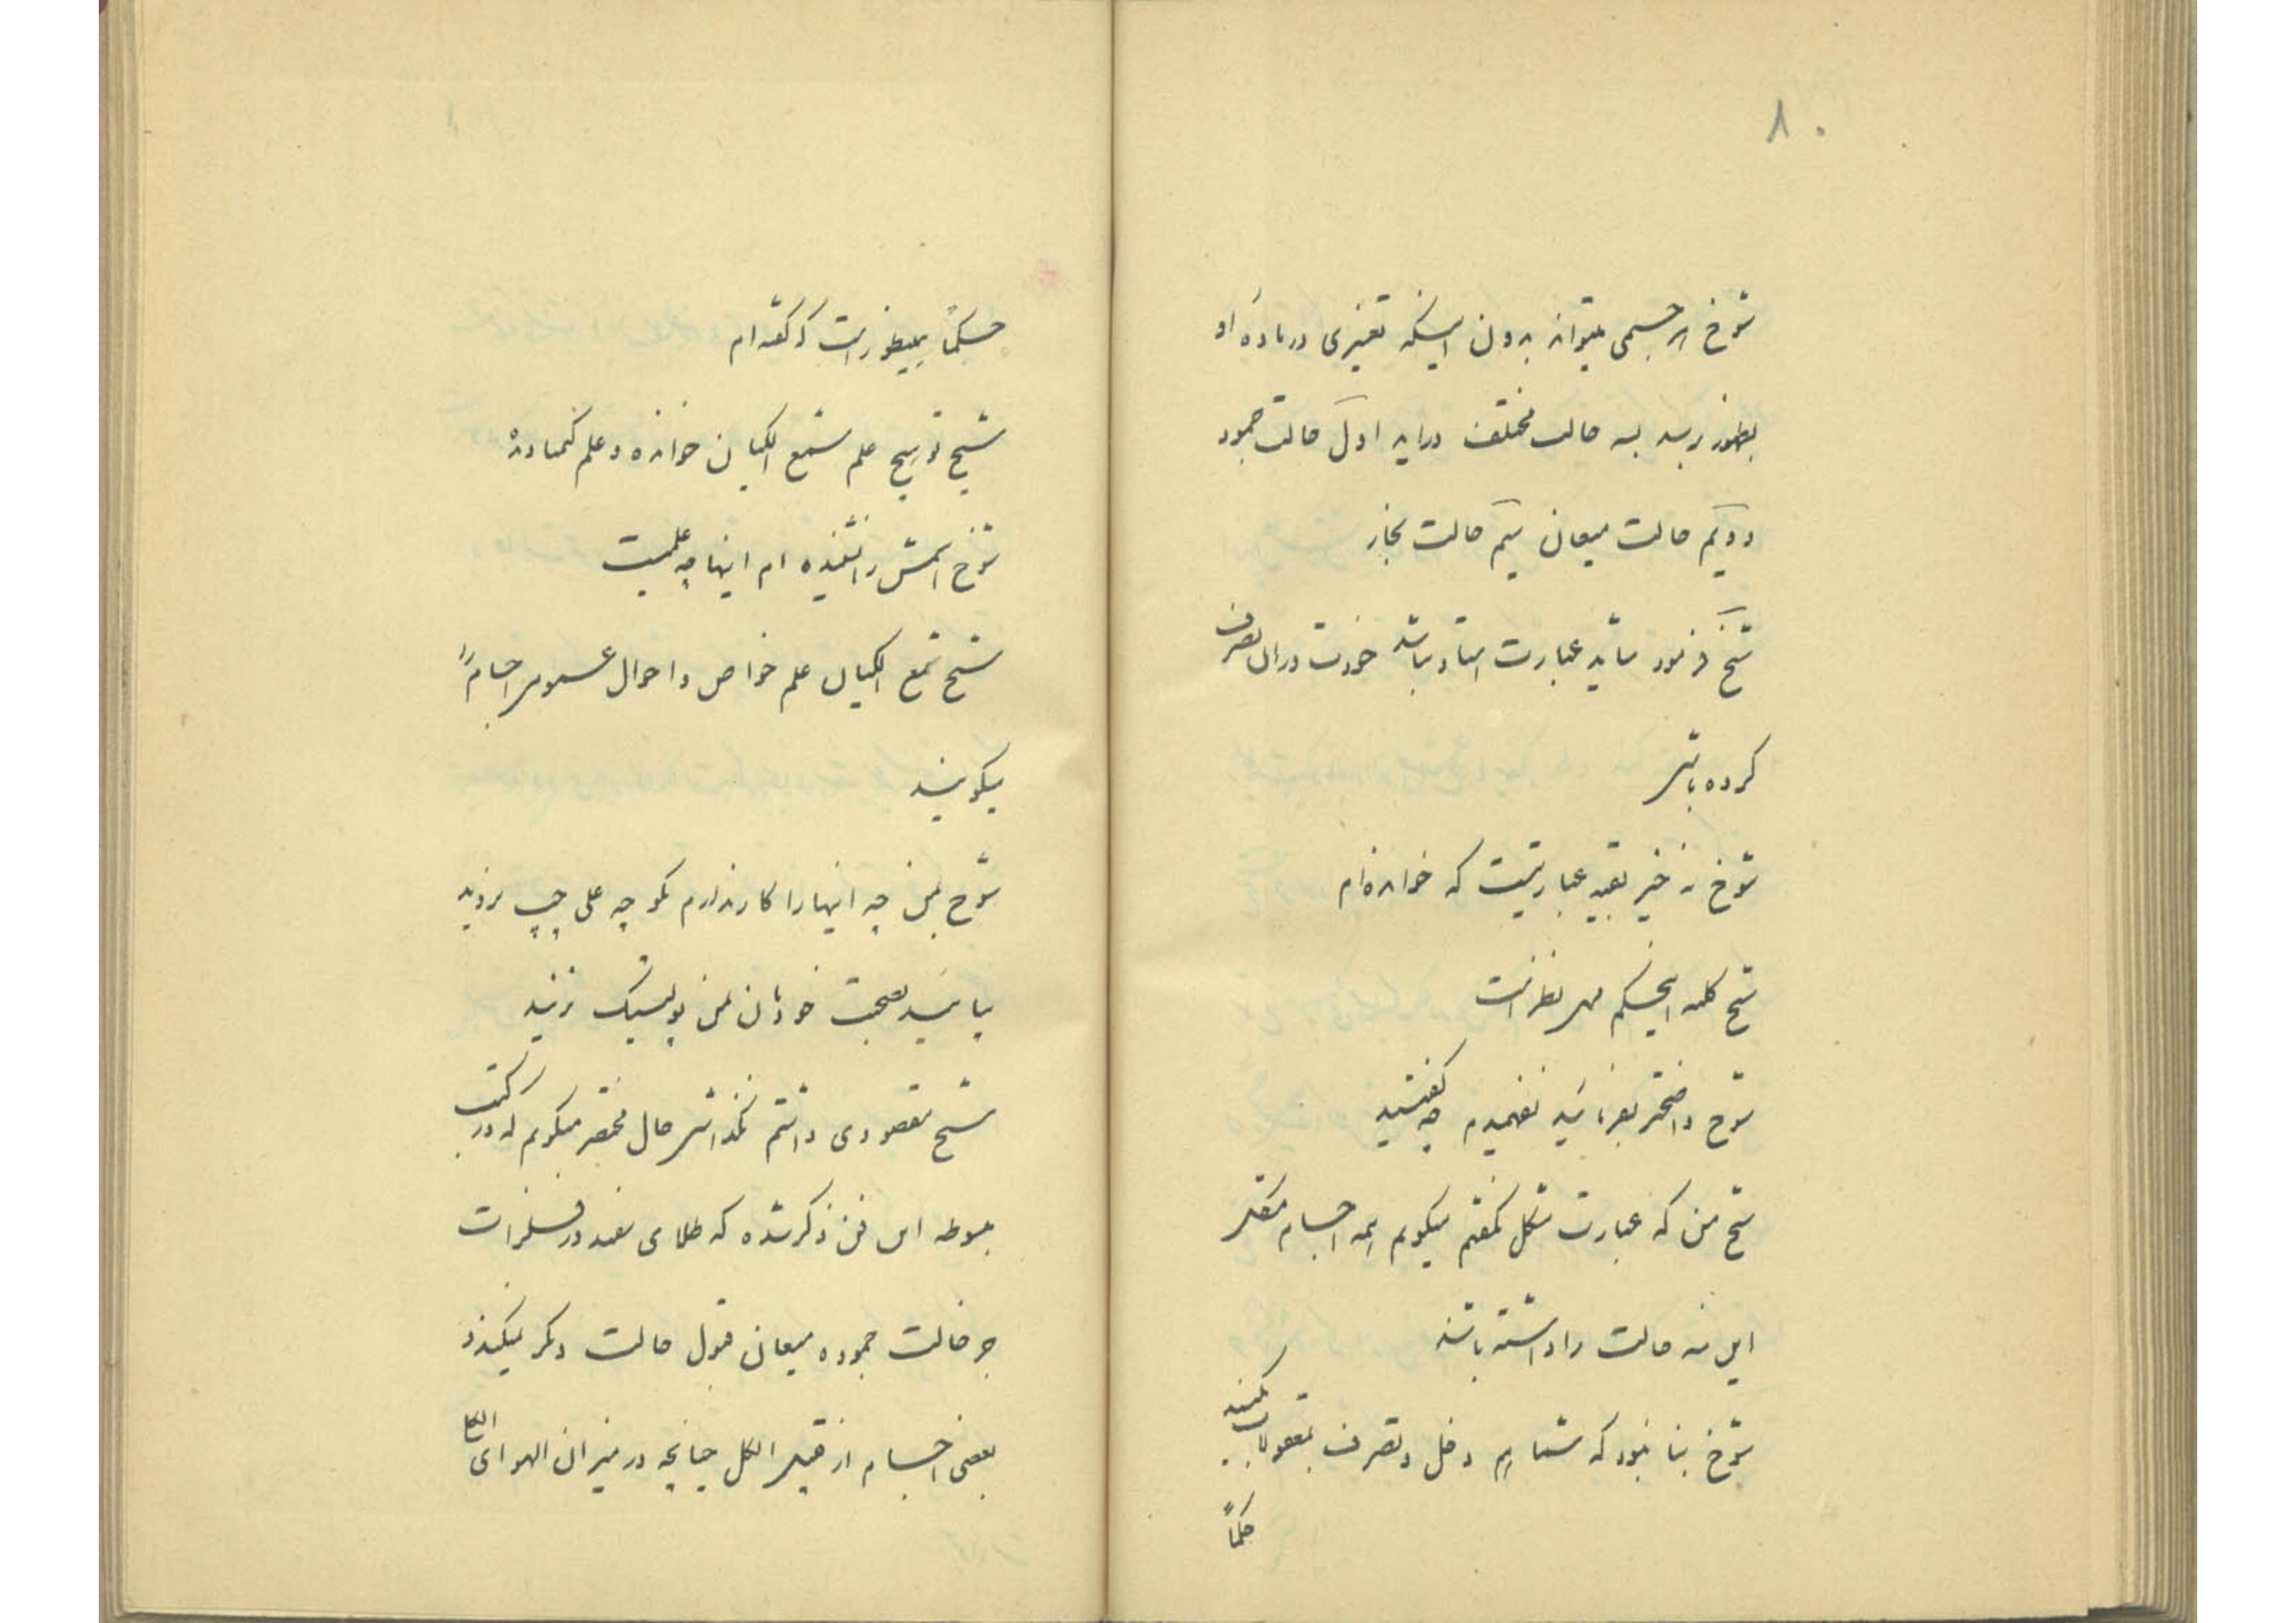 ۸۰
شوخ هر جسمی میتواند بدون اینکه تغییری در ماده او
بظهور برسد بسه حالت مختلف دراید اول حالت جمود
دویم حالت میعان سیم حالت بخار
شیخ فرمود شاید عبارت استاد باشد خودت در ان تصرف
کرده باشی
شوخ نه خیر بعینه عبارتیست که خوانده‌ام
شیخ کلمه اینحکم مهر نظر است
شوخ واضحتر بفرمائید نفهمیدم چه گفتید
شیخ من که عبارت مشکل نگفتم میگویم همه اجسام
این سه حالت را داشته باشند
شوخ بنا نبود که شما هم دخل و تصرف بمعقولات بکنید
حکماً
حکماً همینطور است که گفته ام
شیخ تو هیچ علم سمع الکیان خوانده و علم کیمیا دیده
شوخ اسمش را نشنیده ام اینها چه علمیست
شیخ سمع الکیان علم خواص و احوال عموم اجسام را
میگویند
شوخ بمن چه اینها را کار ندارم بکوچه علی چپ نزنید
بیائید بصحبت خودتان بمن پولتیک نزنید
شیخ مقصودی داشتم نگذاشتی حال مختصر میگویم که در کتب
مبسوطه این فن ذکر شده که طلای سفید و فلزات
جز حالت جمود و میعان قبول حالت دیگر نمیکند
بعضی اجسام از قبیل الکل چنانچه در میزان الهوای